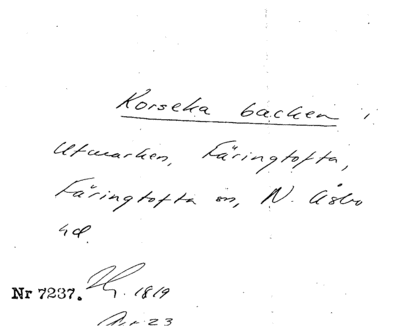 Korseka backen i
Utmarken, Färingtofta,
Färingtofta sn, N. Åsbo
hd.
Nr 7237. 1819
23